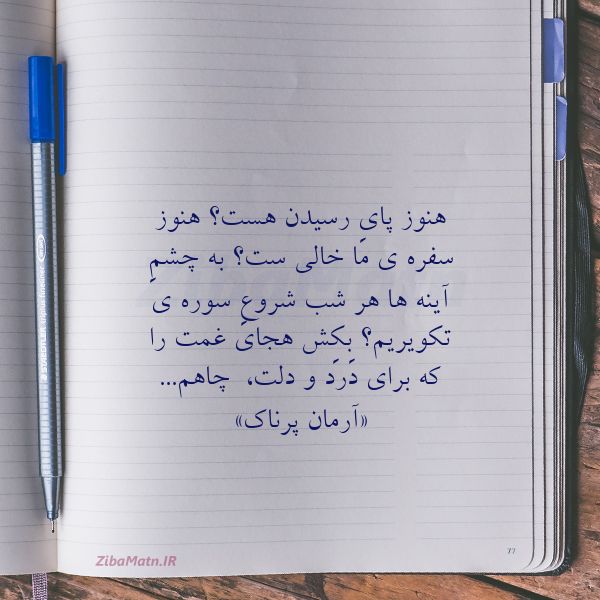 هنوز پایِ رسیدن هست؟ هنوز
سفره ی ما خالی ست؟ به چشمِ
آینه ها هر شب شروعِ سوره ی
تکویریم؟ بِکِش هجایِ غمت را
که برای دَرد و دلت، چاهم...
«آرمان پرناک»
ZibaMatn.IR
77